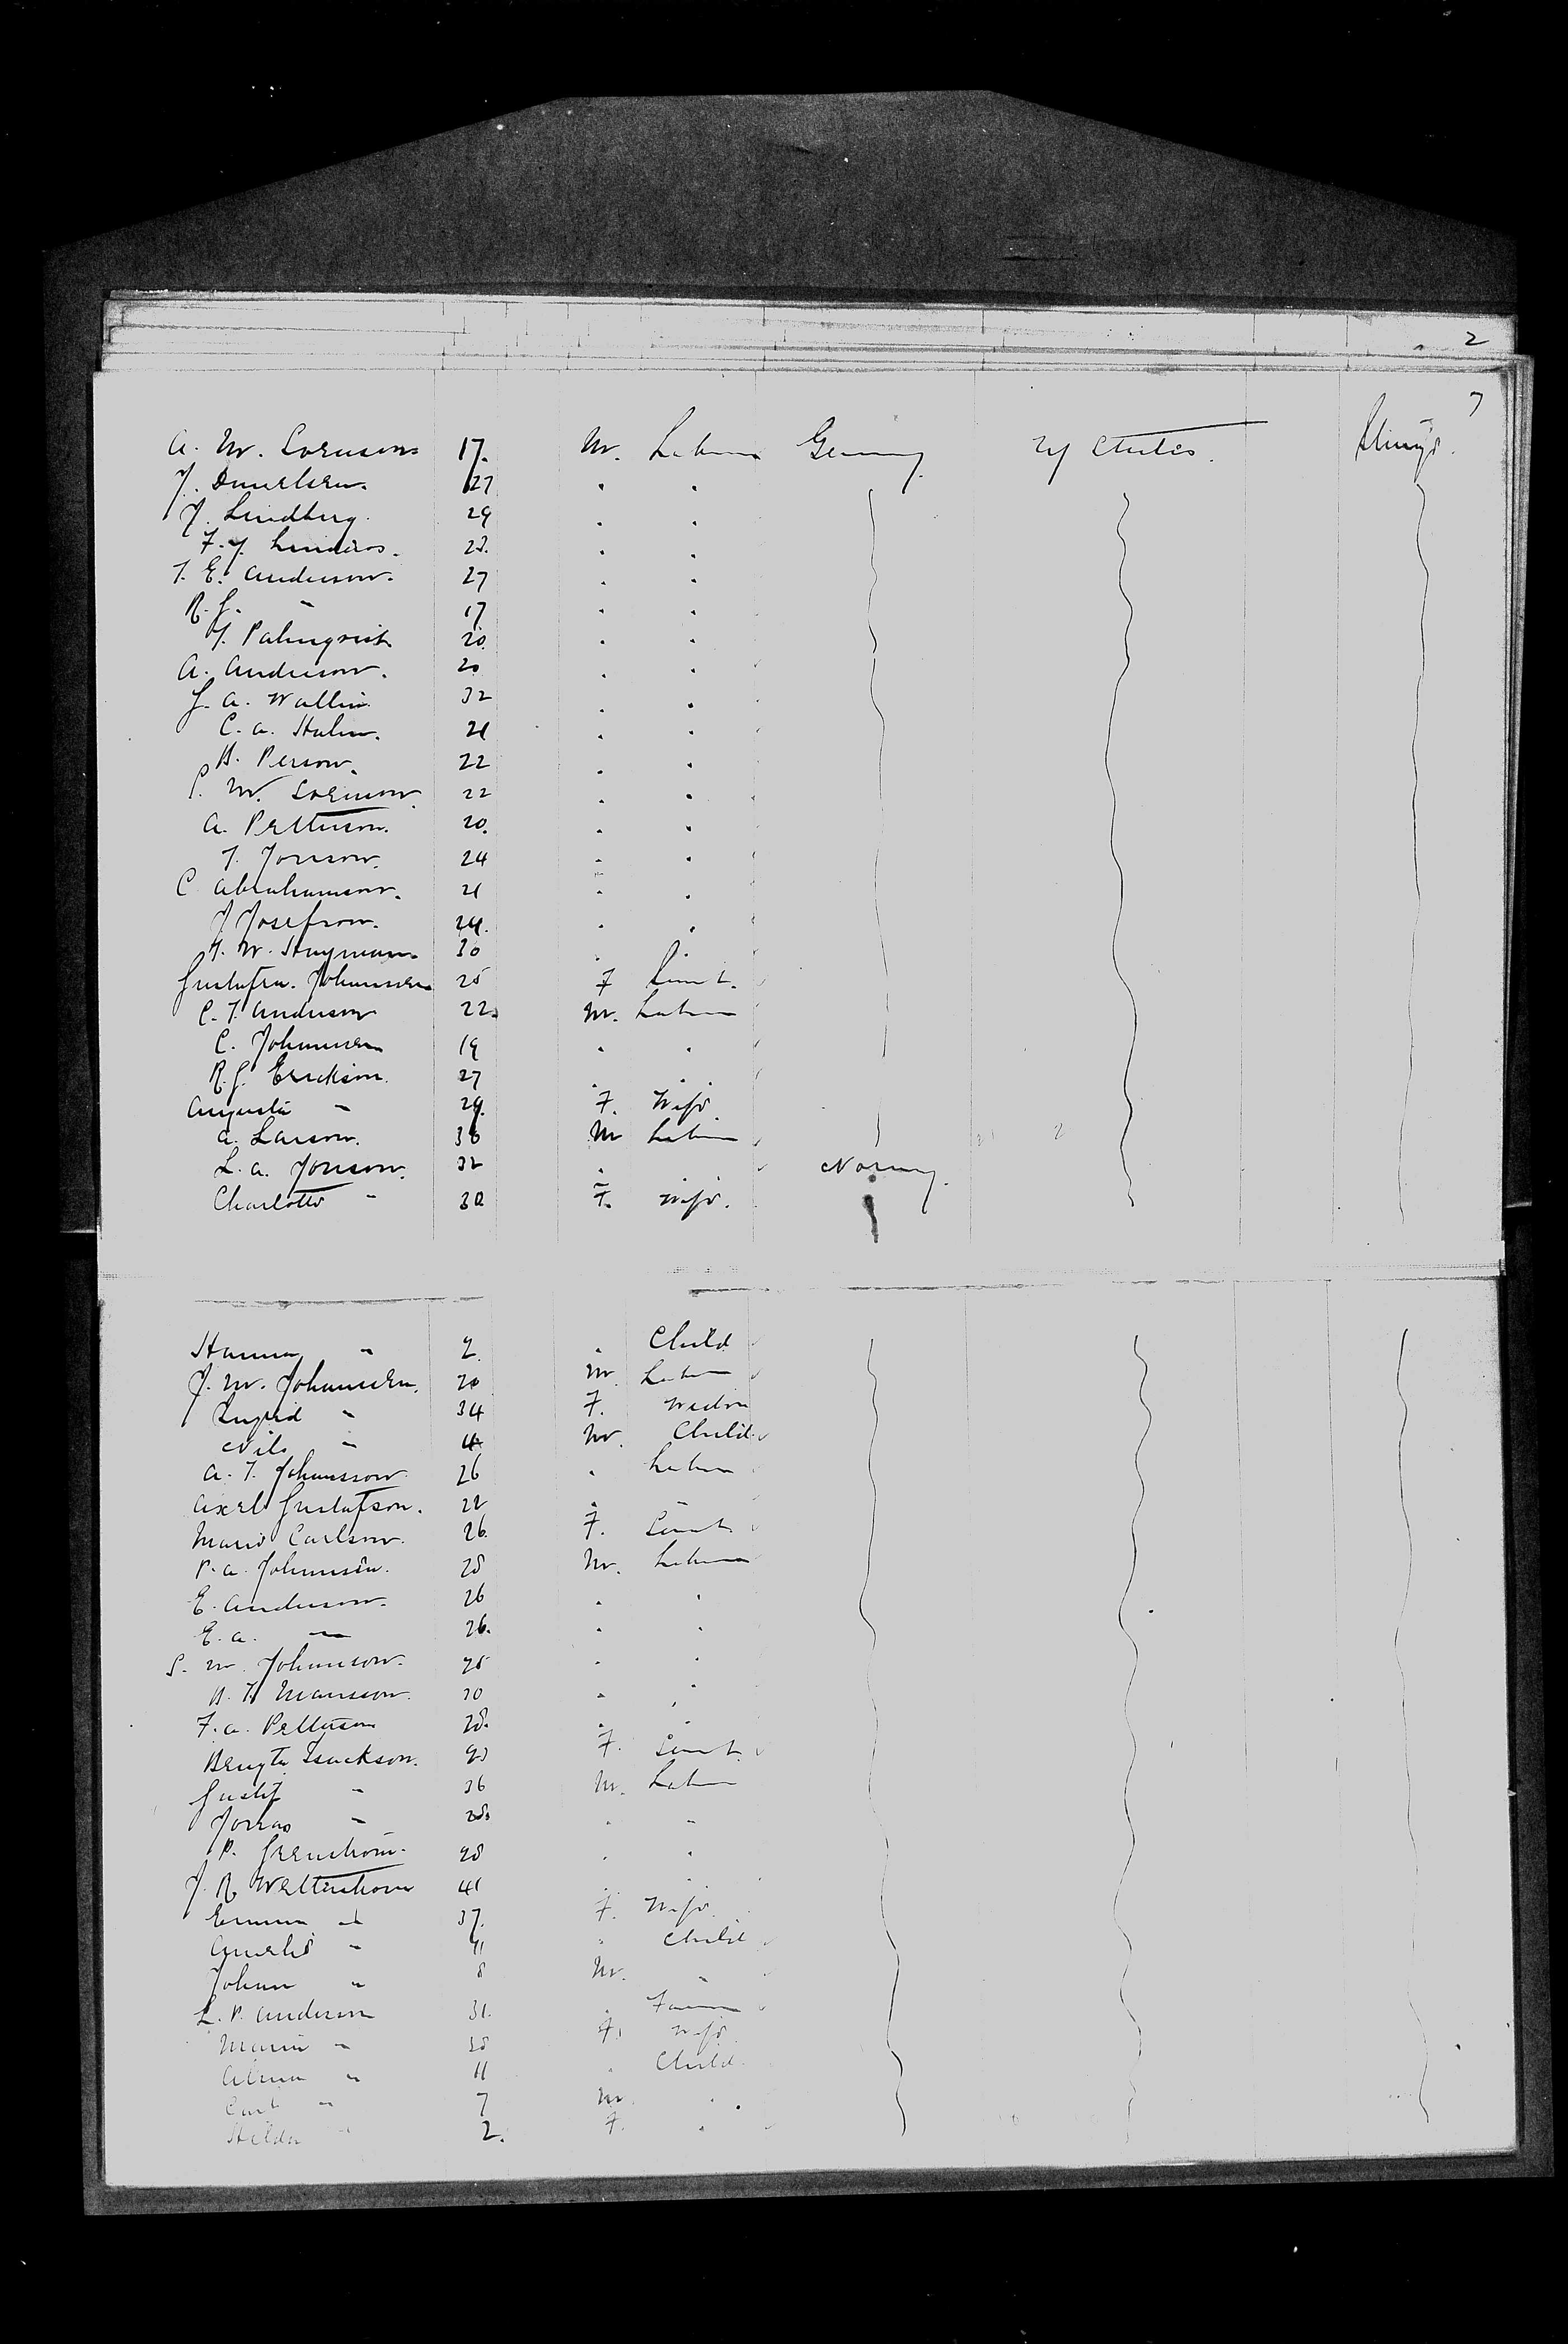 2
7
A. M. Sorenson 17. M. Labor Germany U States
J. Danielsen. 27 " "
J. Lindberg. 29 " "
F. J. 28. " "
J. E. Anderson. 27 " "
R. G. " 17 " "
J. Palmqvist 20. " "
A. Anderson. 20 " "
G. A. Wallin. 32 " "
C. A. Holm. 21 " "
B. Person. 22 " "
P. M. Sorenson. 22 " "
A. Petterson. 20. " "
J. Jonson. 24 " "
C. Abrahamson. 21 " "
J. Josefson. 24. " "
30 " "
Gustafva. Johansen 25 F Servt.
C. J. Anderson 22. M. Labor
C. Johansen 19 " "
R. G. Erickson. 27 " "
Augusta " 29. F. Wife
A. Larson. 36 M Labor
L. A. Jonson. 32 " " Norway.
Charlotte " 30 F. Wife.
Hanna " 2. " Child
J. M. Johansen. 20 M. Labor
Ingrid " 34 F. Widow
Nils " 4 M. Child
A. J. Johansson. 26 " Labor
Axel Gustafson. 22 "
Marie Carlson. 26. F. Servt.
P. A. Johansen. 28 M. Labor
E. Anderson. 26 " "
E. A. " 26. " "
S. M. Johanson. 25 " "
Manson. " "
F. A. Petterson 28. " "
Bengta Isackson. F. Servt.
Gustf " 36 M. Labor
Jonas " 28. " "
P. " "
J. R. 41 " "
Emma " 37. F. Wife.
Amelie " 11 " Child
Johan " 8 M. "
L. P. Anderson 31. " Farmer
Maria " F. Wife
Alma " 11 " Child.
Carl " 7 M. "
Hilda " 2. F. "